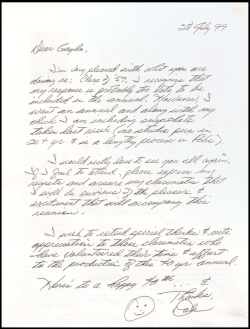 28 July 99
Dear Gayla,
I'm very pleased with what you are
doing re: Class of '59. I recognize that
my response is probably too late to be
included in the annual. However, I
want an annual and along with my
check I am including snapshots
taken last week (no studio pics in
20+ yr. & is a lengthy process in
I would really love to see you all again.
If I fail to attend, please express my
regrets and assure my classmates that
I will be envious of the pleasure &
excitement that will accompany this
reunion.
I wish to extend special thanks & note
appreciation to those classmates who
have volunteered their time & effort
to the production of this 40 yr. annual.
Here's to a Happy 40th
Thanks,